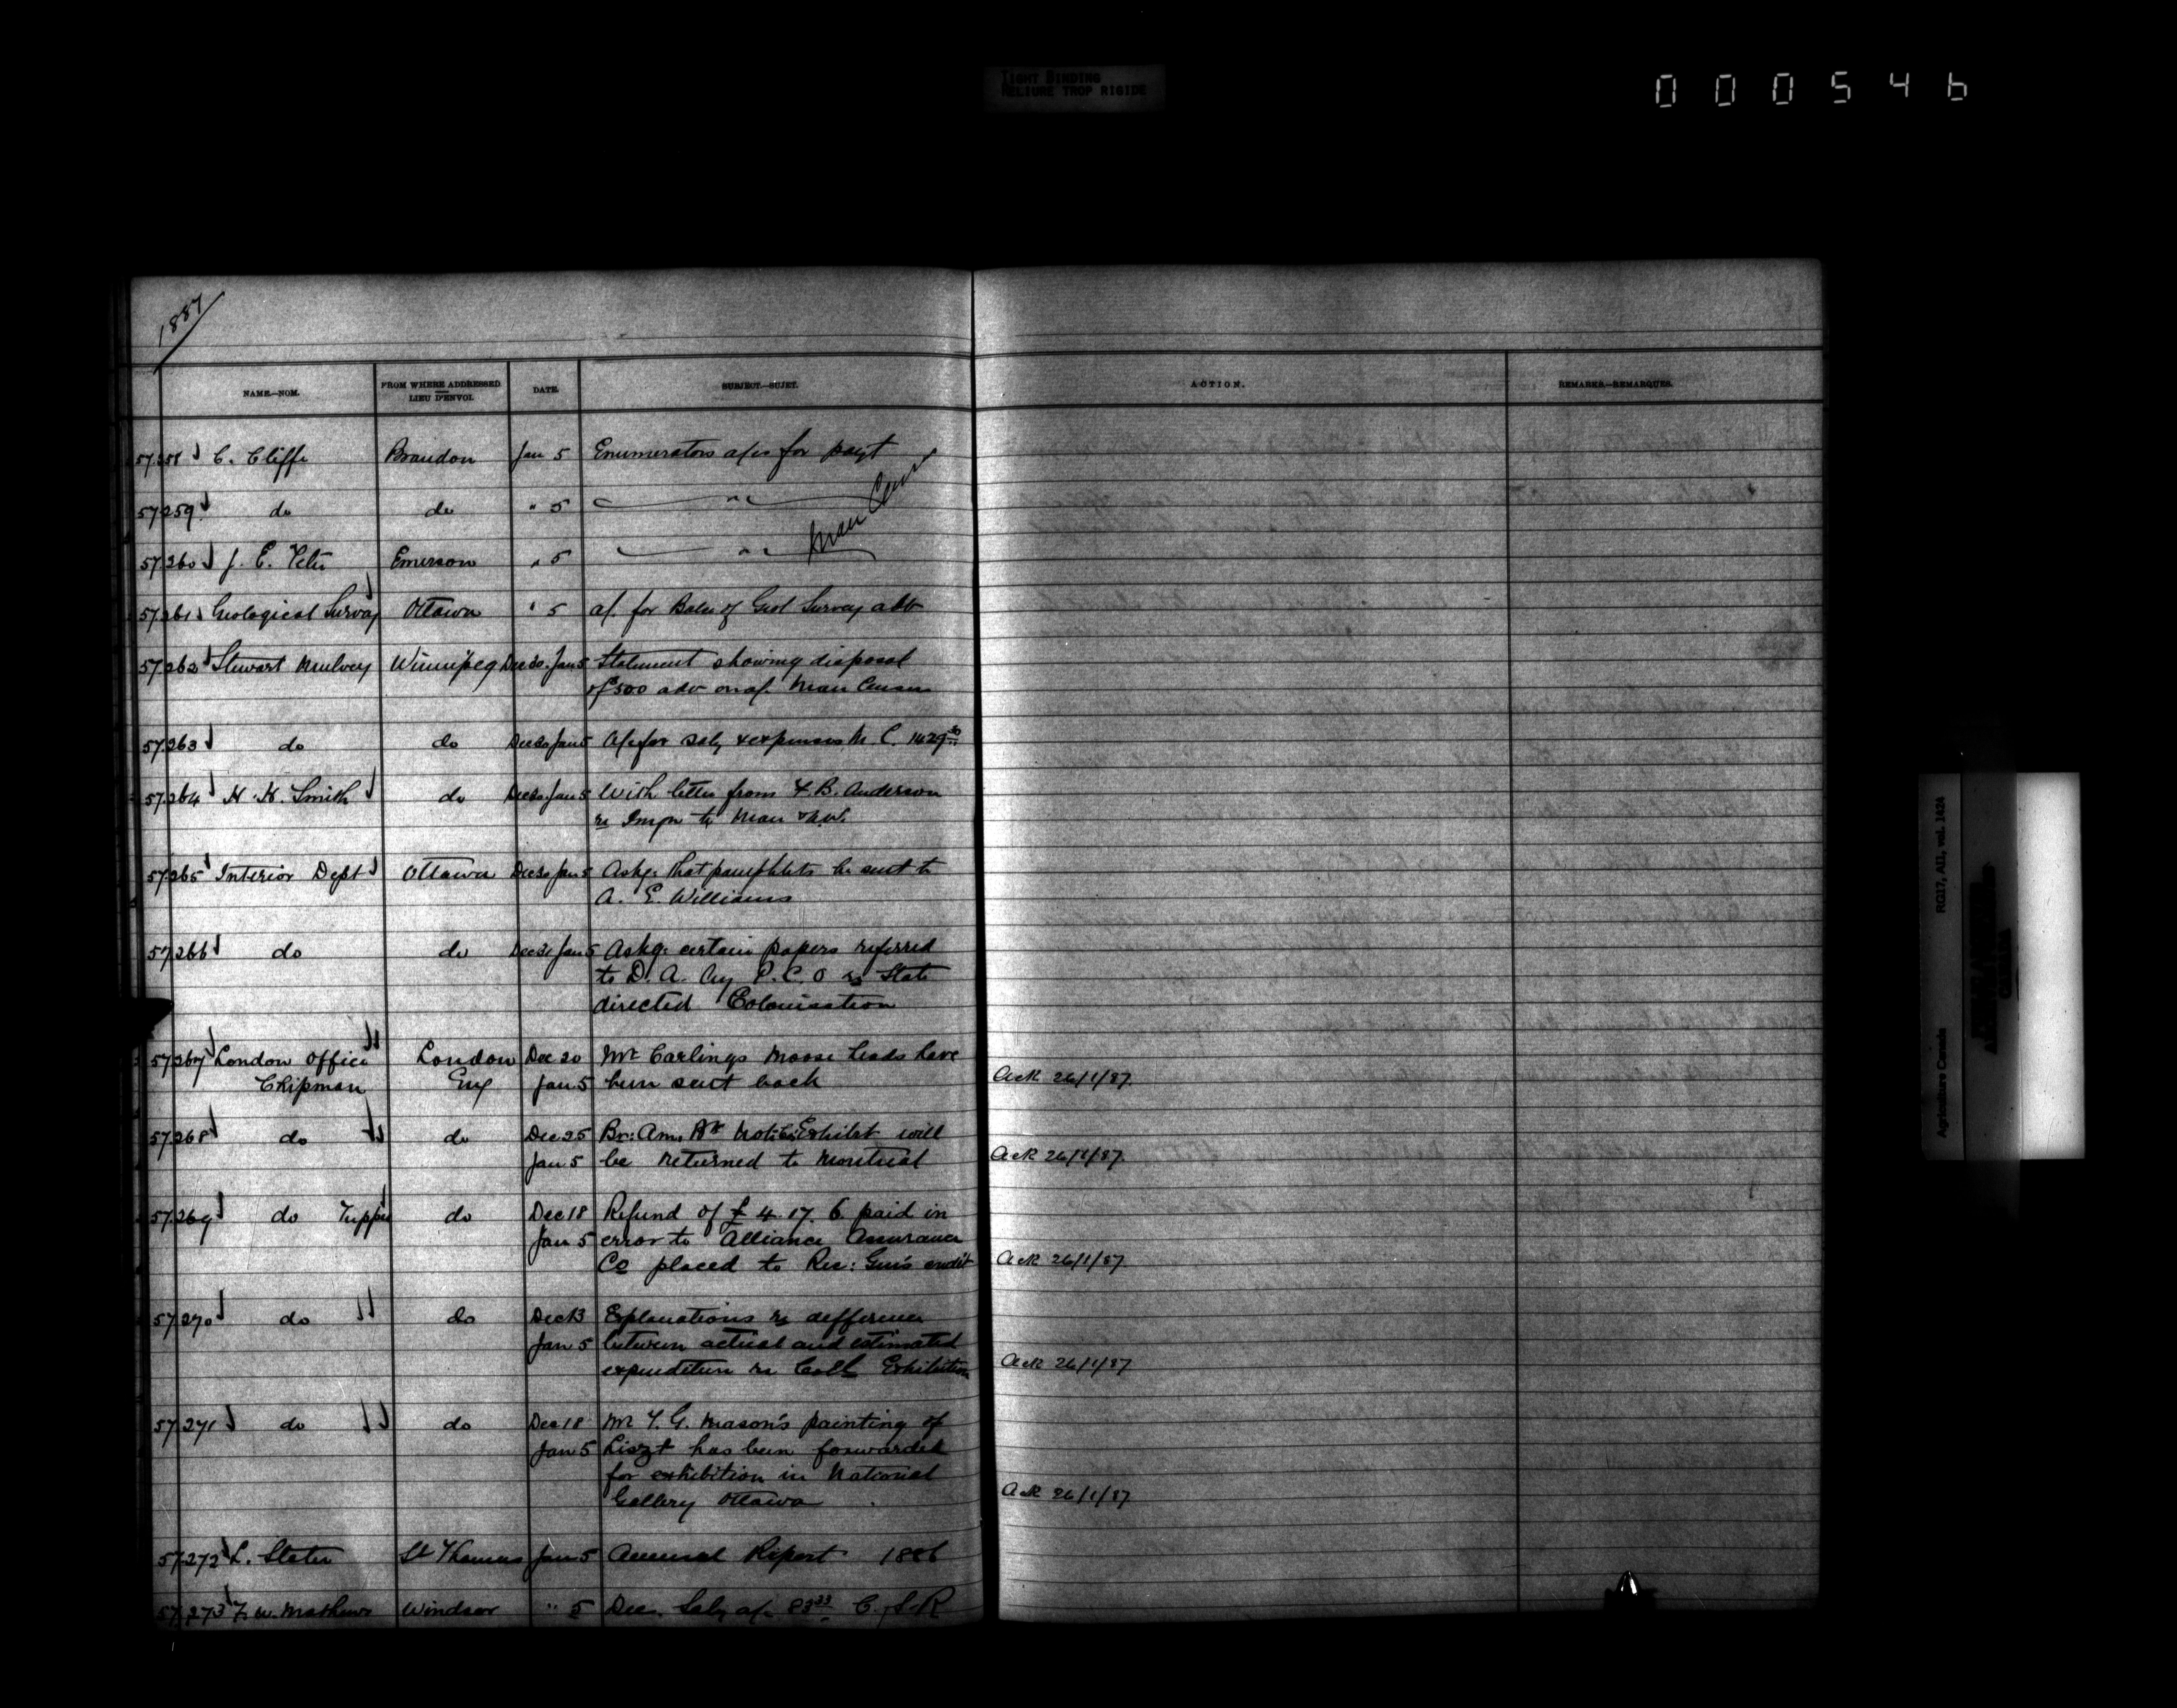 TIGHT BINDING
RELIURE TROP RIGIDE
000546
1887
NAME.—NOM. FROM WHERE ADDRESSED LIEU D'ENVOI. DATE. SUBJECT.—SUJET. ACTION. REMARKS.—REMARQUES.
57258 C. Cliffe Brandon Jan 5 Enumerators a/cs for payt
57259 do do " 5 "
Man Census
57260 J. E. Emerson " 5 "
57261 Geological Survey Ottawa " 5 a/c for Balce of Geol Survey adv
57262 Stewart Mulvey Winnipeg Dec 30. Jan 5 Statement showing disposal
of $500 adv on a/c Man Census
57263 do do Dec 30 Jan 5 A/c for saly & expenses M. C. 1429
57264 H. K. Smith do Dec 30. Jan 5 With letter from F. B. Anderson
re Imgn to Man & N.W.
57265 Interior Dept Ottawa Dec 30 Jan 5 Askg. that pamphlets be sent to
A. E. Williams
57266 do do Dec 31 Jan 5 Askg. certain papers referred
to D. A. by P. C. O re State
directed Colonisation
57267 London Office London Dec 20 Mr Carlings Moose heads have
Chipman Eng Jan 5 been sent back Ack 26/1/87.
57268 do do Dec 25 Br: Am. Bk Note Co. Exhibit will
Jan 5 be returned to Montreal Ack 26/1/87.
57269 do Tupper do Dec 18 Refund of £ 4. 17. 6 paid in
Jan 5 error to Alliance Assurance
Co placed to Rec: Gen's credit Ack 26/1/87
57270 do do Dec 13 Explanations re difference
Jan 5 between actual and estimated
expenditure re Coll Exhibition Ack 26/1/87
57271 do do Dec 18 Mr T. G. Mason's painting of
Jan 5 Liszt has been forwarded
for exhibition in National
Gallery Ottawa Ack 26/1/87
57272 L. Slater St Thomas Jan 5 Annual Report 1886
57273 F. W. Mathews Windsor " 5 Dec. Saly a/c 83 33 C. S. R
Agriculture Canada RG17, AII, vol. 1424